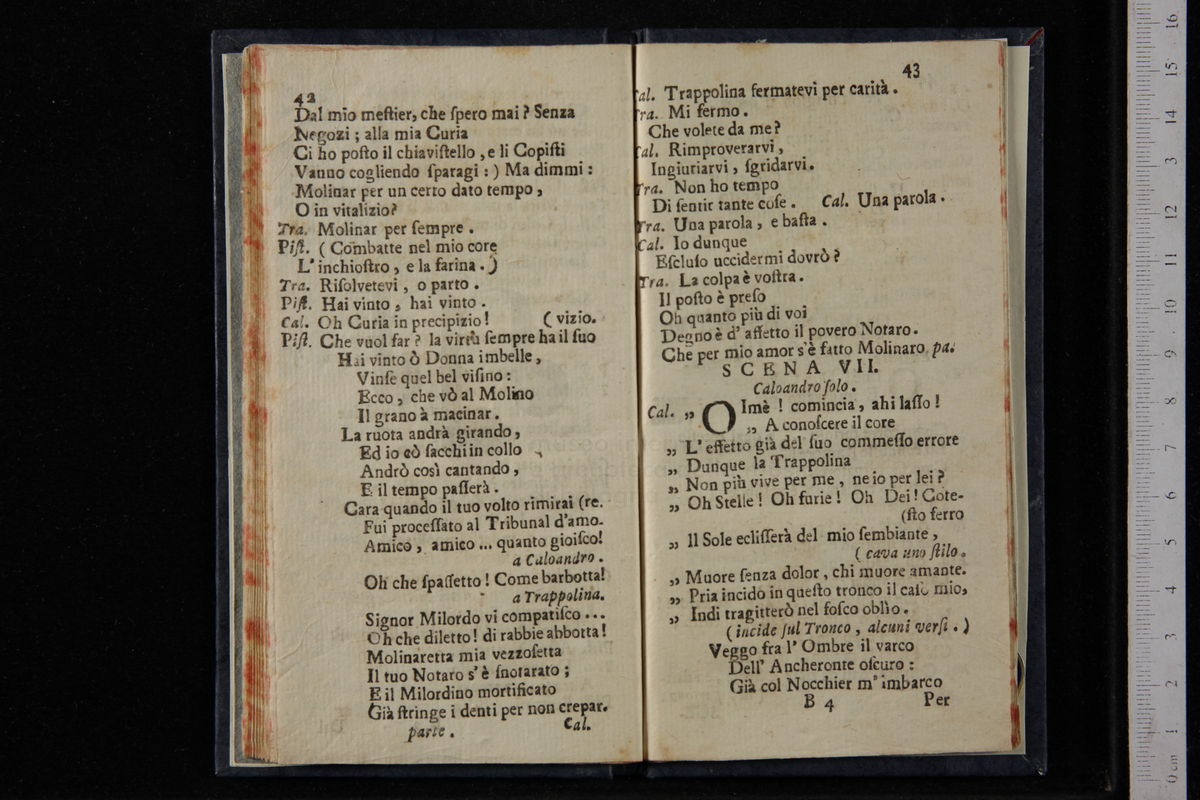 42
Dal mio meſtier, che ſpero mai? Senza
Negozi; alla mia Curia
Ci ho poſto il chiaviſtello, e li Copiſti
Vanno cogliendo ſparagi:) Ma dimmi:
Molinar per un certo dato tempo,
O in vitalizio?
Tra. Molinar per ſempre.
Piſt. (Combatte nel mio core
L'inchioſtro, e la farina.)
Tra. Riſolvetevi, o parto.
Piſt. Hai vinto, hai vinto.
Cal. Oh Curia in precipizio! (vizio.
Piſt. Che vuol far? la virtù ſempre ha il ſuo
Hai vinto ò Donna imbelle,
Vinſe quel bel viſino:
Ecco, che vò al Molino
Il grano à macinar.
La ruota andrà girando,
Ed io cò ſacchi in collo
Andrò così cantando,
E il tempo paſſerà.
Cara quando il tuo volto rimirai (re.
Fui proceſſato al Tribunal d'amo-
Amico, amico ... quanto gioiſco!
a Caloandro.
Oh che ſpaſſetto! Come barbotta!
a Trappolina.
Signor Milordo vi compatiſco ...
Oh che diletto! di rabbie abbotta!
Molinaretta mia vezzoſetta
Il tuo Notaro s'è ſnotarato;
E il Milordino mortificato
Già ſtringe i denti per non crepar.
parte. Cal.
43
Cal. Trappolina fermatevi per carità.
Tra. Mi fermo.
Che volete da me?
Cal. Rimproverarvi,
Ingiuriarvi, ſgridarvi.
Tra. Non ho tempo
Di ſentir tante coſe. Cal. Una parola.
Tra. Una parola, e baſta.
Cal. Io dunque
Eſcluſo uccidermi dovrò?
Tra. La colpa è voſtra.
Il poſto è preſo
Oh quanto più di voi
Degno è d'affetto il povero Notaro.
Che per mio amor s'è fatto Molinaro. pa.
SCENA VII.
Caloandro ſolo.
Cal. „ OImè! comincia, ahi laſſo!
„ A conoſcere il core
„ L'effetto già del ſuo commeſſo errore
„ Dunque la Trappolina
„ Non più vive per me, ne io per lei?
„ Oh Stelle! Oh furie! Oh Dei! Cote-
(ſto ferro
„ Il Sole ecliſſerà del mio ſembiante,
(cava uno ſtilo.
„ Muore ſenza dolor, chi muore amante.
„ Pria incido in queſto tronco il caſo mio,
„ Indi tragitterò nel foſco oblìo.
(incide ſul Tronco, alcuni verſi.)
Veggo fra l'Ombre il varco
Dell' Ancheronte oſcuro:
Già col Nocchier m'imbarco
B 4 Per